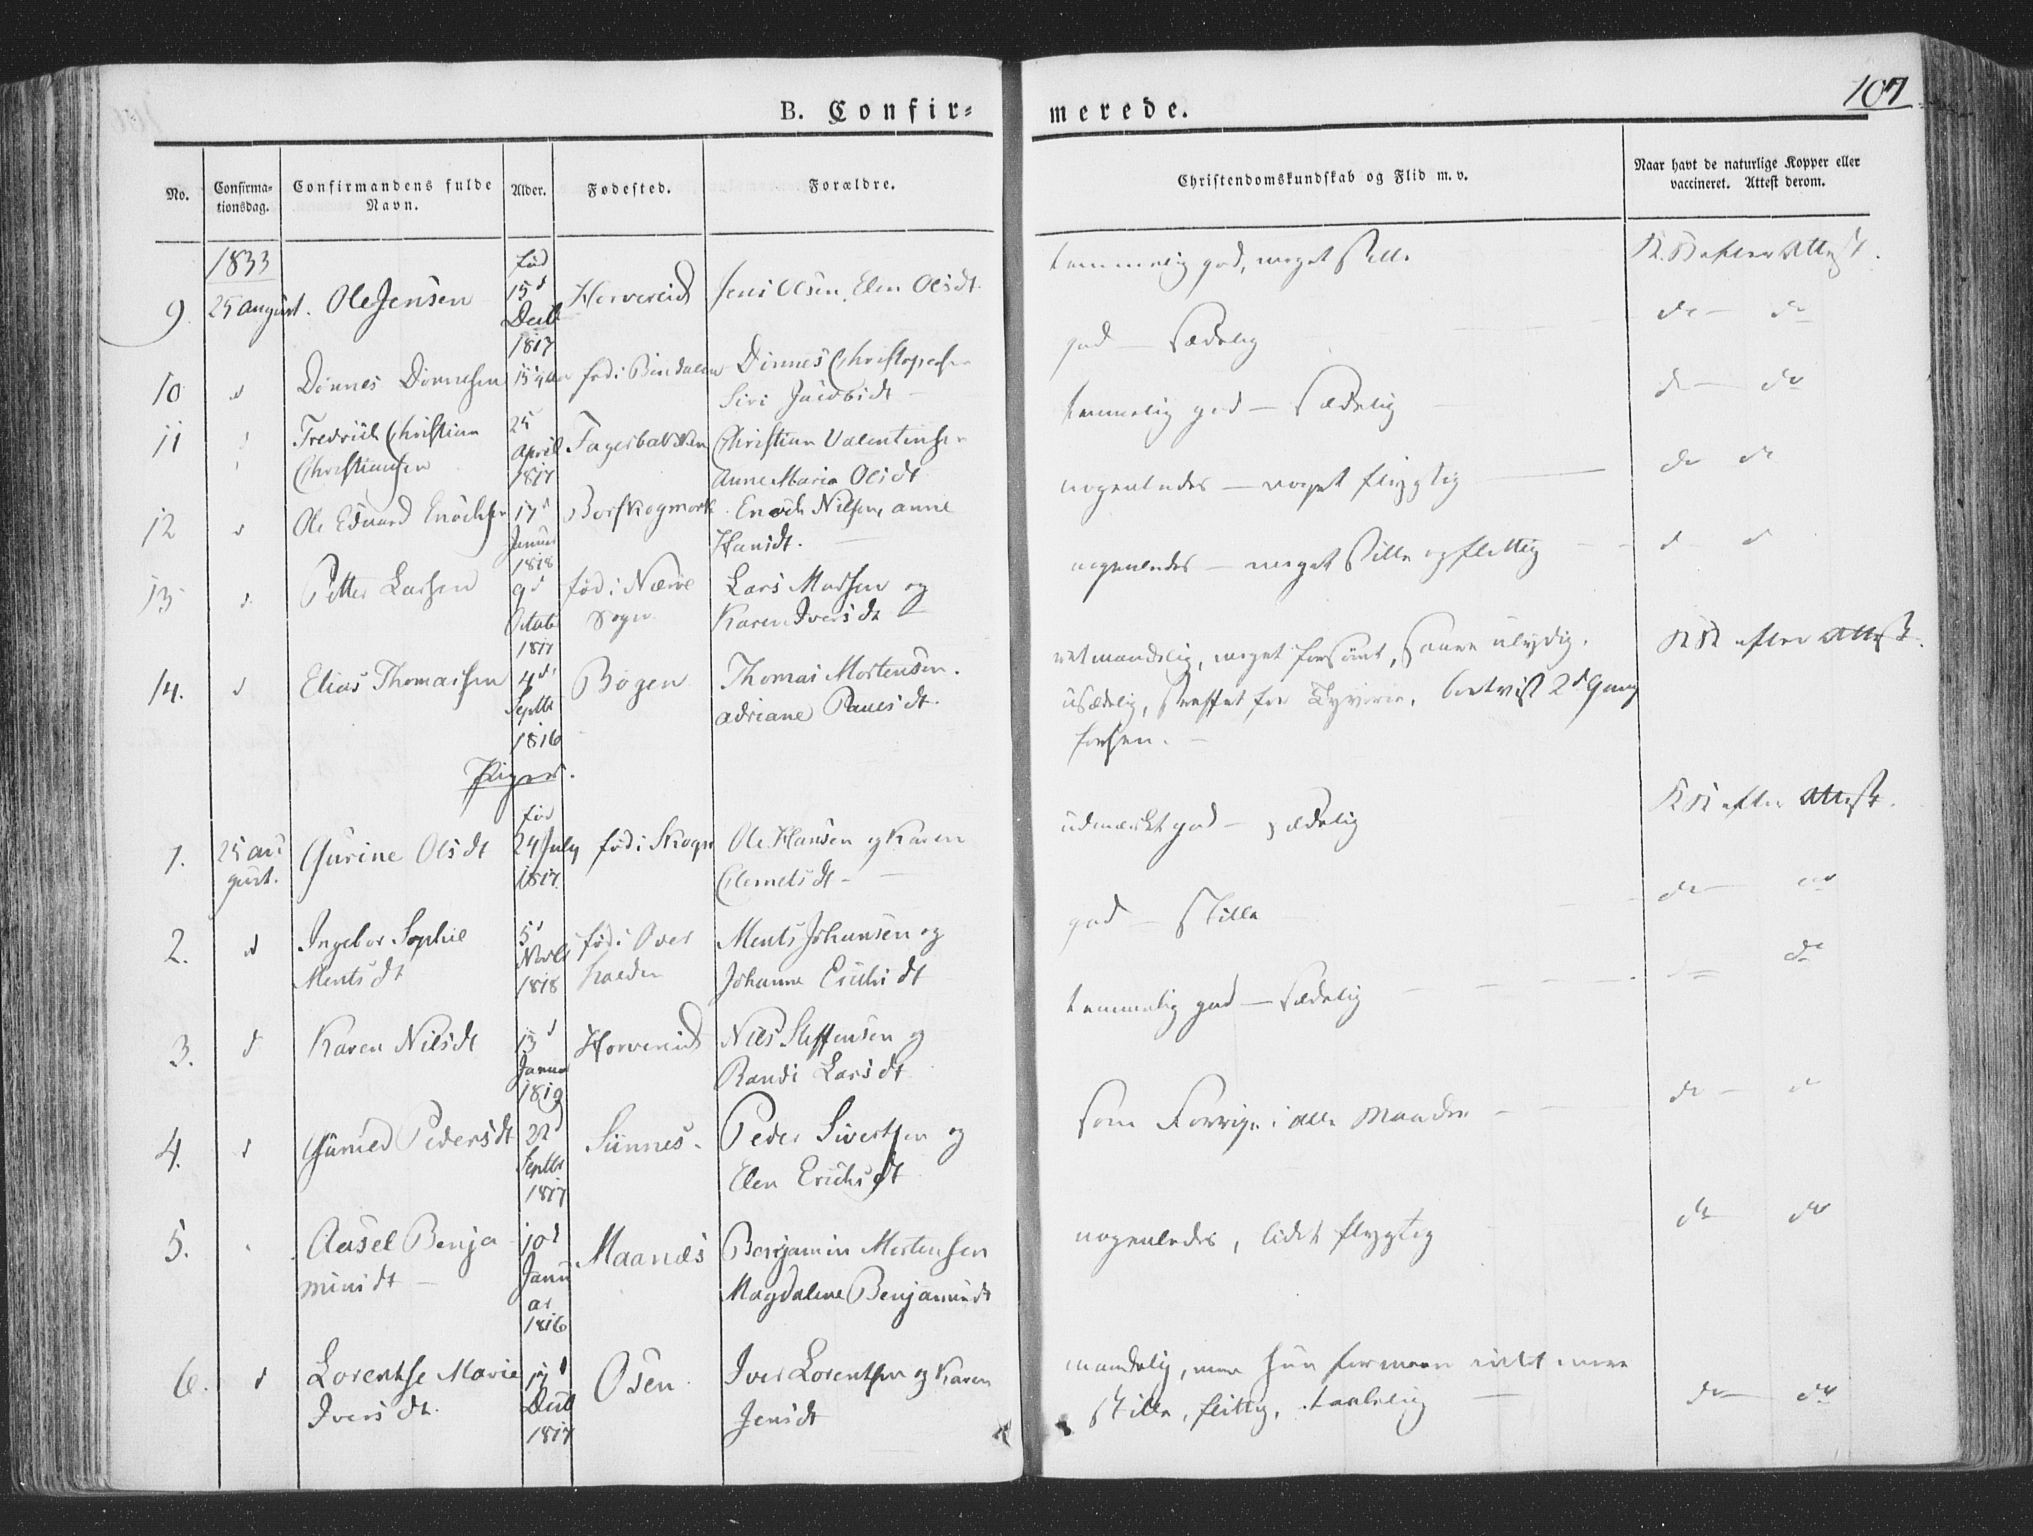 107
B. Confir=
merede.
No.
Confirma-
tionsdag.
Confirmandens fulde
Navn.
Alder.
Fødested.
Forældre.
Christendomskundskab og Flid m. v.
Naar havt de naturlige Kopper eller
vaccineret. Attest derom.
1833
9. 25 august. Ole Jensen
fød
15d
Decb
1817
Horvereid
Jens Olsen, Elen Olsdt
temmelig god, meget stille
Attest.
10 d Dønnes Dønnesen
fød i Bindalen Dønnes Christophersen
Siri Jacobsdt
god - Sædelig
do - do
11
Fredrich Christian
Christiansen
25
April
1817
Christian Valentinsen
Anne Maria Olsdt
temmelig god - Sædelig
do - do
12 d Ole Eduard Enochsen
17d
Januar
1818
Enoch Nilsen, anne
Hansdt.
nogenledes - meget flygtig
do do
13 d. Petter Larsen
9d
Octob
1817
fød i Nærøe
Sogn
Lars Madsen og
Karen Iversdt
nogenledes - meget stille og flittig
d - d
14. d Elias Thomassen
4d
Septbr
1816
Bogen
Thomas Mortensen.
adriane Paulsdt.
meget forsømt, ulydig.
usædelig, straffet for Tyverie, bortvist 2d Gang
forhen.
efter Attest.
Piger.
1. 25 au
gust.
Gurine Olsdt
fød
24 July
1817
fød i Skogn
Ole Hansen og Karen
Clemetsdt -
udmærket god - sædelig
efter Attest.
2. d Ingebor Sophie
Mentsdt
5d
Novb
1818
fød i Over
halden
Ments Johansen og
Johanne Erichsdt
god - Stille
do - do
3. d Karen Nilsdt
13d
Januar
1819
Horvereid
Nils Steffensen og
Randi Larsdt
temmelig god - Sædelig
do do
4. d Gunild Pedersdt
22d
Septbr
1817
Sünnes -
Peder Sivertsen og
Elen Erichsdt
som Forrige i alle Maader
do - d
5. Aasel Benja
minsdt -
10d
Janu
ar
1816
Maanæs
Benjamin Mortensen
Magdalene Benjaminsdt
nogenledes, lidet flygtig
do do
6. d Lorentse Marie
Iversdt.
Decb
1817
Osen
Iver Lorentsen og Karen
Jensdt
maadelig, men hun formaaer ikke mere
Stille, flittig, taalelig
do - do